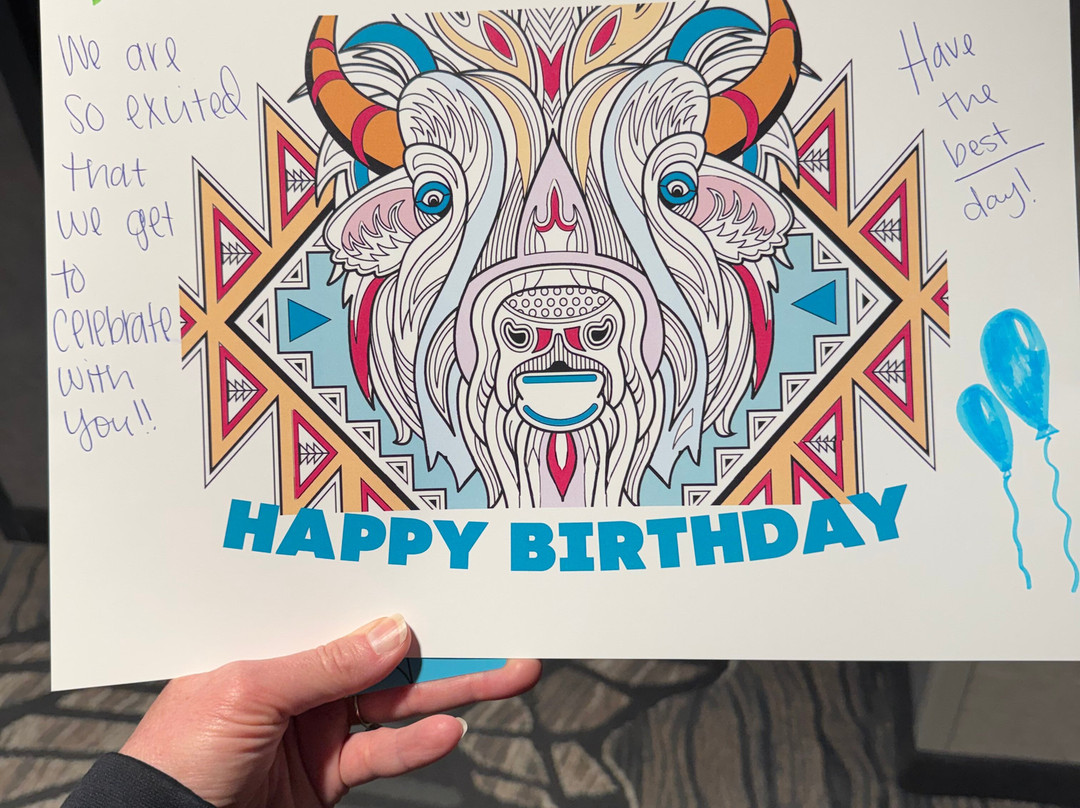 We are
so excited
that
we get
to
celebrate
with
you!!
Have
the
best
day!
HAPPY BIRTHDAY